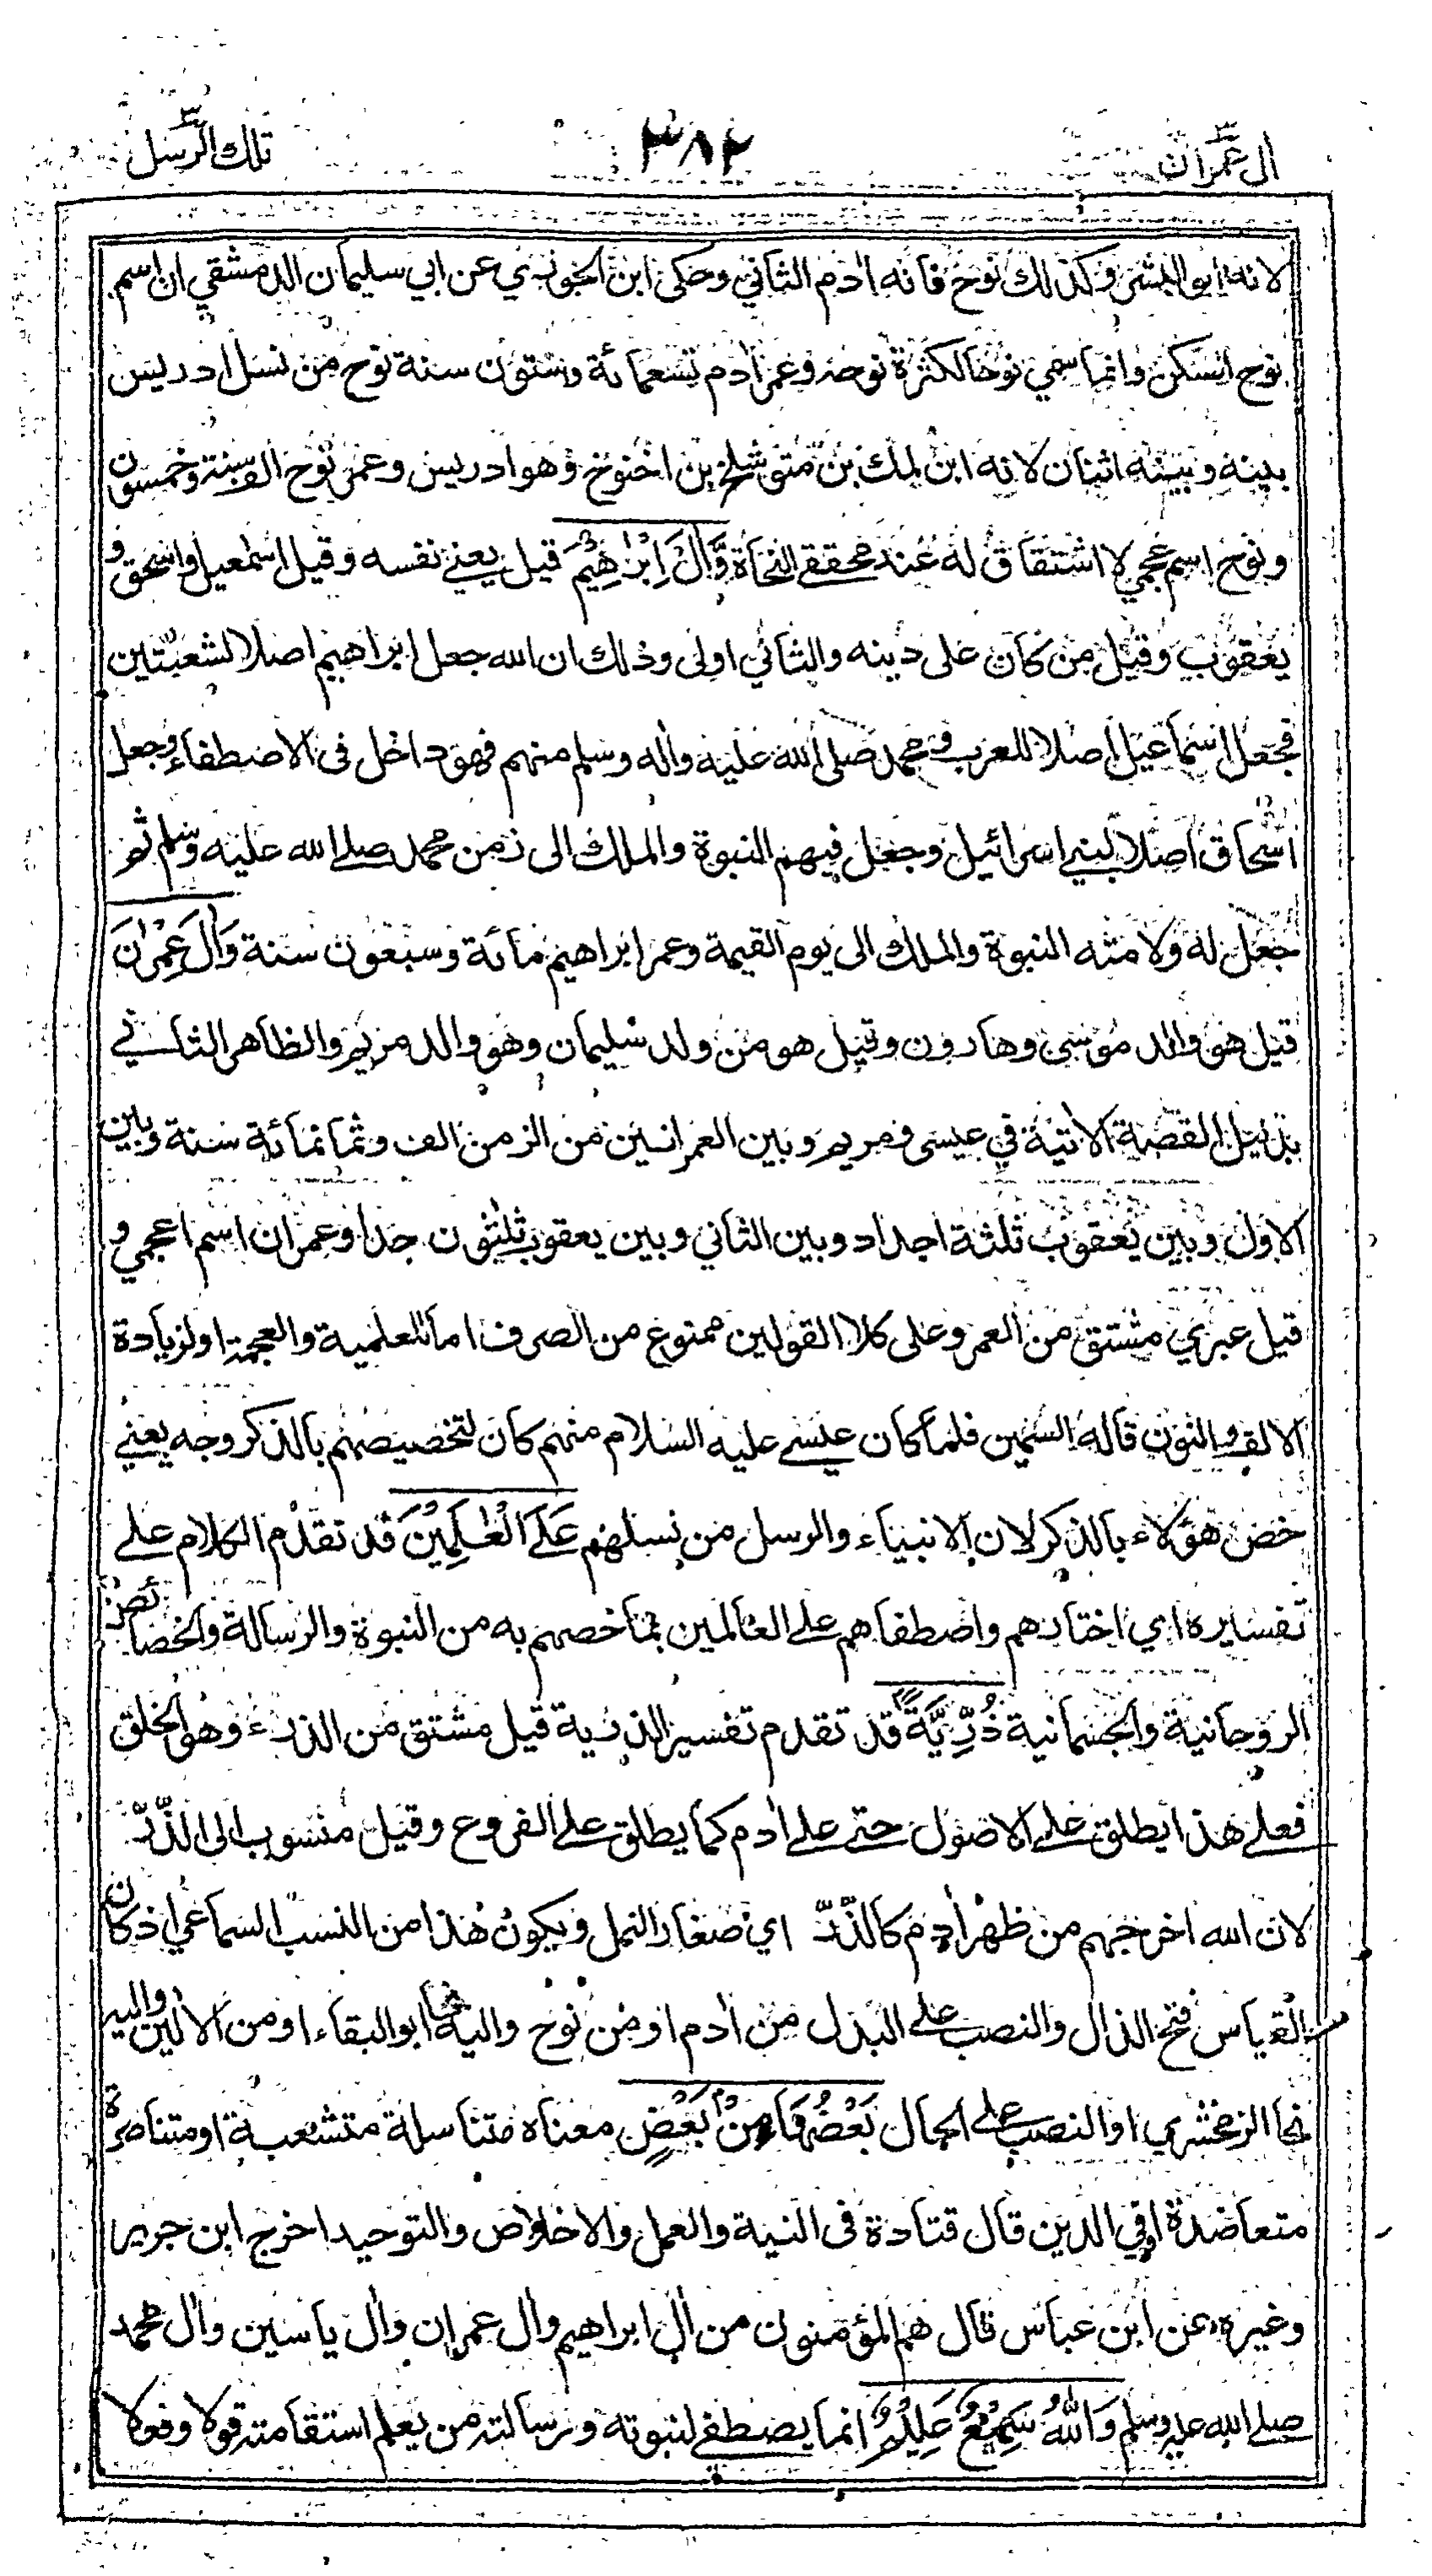 تلك الرسل ٣
٣٨٢
ال عمران ٣
لانه ابو البشر وكذلك نوح فانه ادم الثاني وحكى ابن الجوزي عن ابي سليمان الدمشقي ان اسم
نوح السكن وانما سمي نوحا لكثرة نوحه وعمر ادم تسعمائة وستون سنة نوح من نسل ادريس
بينه وبينه اثنان لانه ابن لمك بن متوشلخ بن اخنوخ وهو ادريس وعمر نوح الف سنة وخمسون
ونوح اسم عجمي لا اشتقاق له عند محققي النحاة وَّاٰلَ اِبْرٰهِيْمَ قيل يعني نفسه وقيل اسمعيل واسحق و
يعقوب وقيل من كان على دينه والثاني اولى وذلك ان الله جعل ابراهيم اصلا لشعبتين
فجعل اسماعيل اصلا للعرب ومحمد صلى الله عليه واله وسلم منهم فهو داخل في الاصطفاء وجعل
اسحاق اصلا لبني اسرائيل وجعل فيهم النبوة والملك الى زمن محمد صلى الله عليه وسلم ثم
جعل له ولامته النبوة والملك الى يوم القيمة وعمر ابراهيم مائة وسبعون سنة وَاٰلَ عِمْرٰنَ
قيل هو والد موسى وهارون وقيل هو من ولد سليمان وهو والد مريم والظاهر الثاني
بدليل القصة الاتية في عيسى ومريم وبين العمرانين من الزمن الف وثمانمائة سنة وبين
الاول وبين يعقوب ثلثة اجداد وبين الثاني وبين يعقوب ثلثون جدا وعمران اسم اعجمي و
قيل عبري مشتق من العمر وعلى كلا القولين ممنوع من الصرف اما للعلمية والعجمة او لزيادة
الالف والنون قاله السمين فلما كان عيسى عليه السلام منهم كان لتخصيصهم بالذكر وجه يعني
خص هؤلاء بالذكر لان الانبياء والرسل من نسلهم عَلَى الْعٰلَمِيْنَ قد تقدم الكلام على
تفسيره اي اختارهم واصطفاهم على العالمين بما خصهم به من النبوة والرسالة والخصائص
الروحانية والجسمانية ذُرِّيَّةً قد تقدم تفسير الذرية قيل مشتق من الذرء وهو الخلق
فعلى هذا يطلق على الاصول حتى على ادم كما يطلق على الفروع وقيل منسوب الى الذَّرِّ
لان الله اخرجهم من ظهر ادم كالذَّرِّ اي صغار النمل ويكون هذا من النسب السماعي اذ كان
القياس فتح الذال والنصب على البدل من ادم او من نوح واليه نحا ابو البقاء او من الالين واليه
نحا الزمخشري او النصب على الحال بَعْضُهَا مِنْۢ بَعْضٍ معناه متناسلة متشعبة او متناصرة
متعاضدة في الدين قال قتادة في النية والعمل والاخلاص والتوحيد اخرج ابن جرير
وغيره عن ابن عباس قال هم المؤمنون من ال ابراهيم وال عمران وال ياسين وال محمد
صلى الله عليه وسلم وَاللّٰهُ سَمِيْعٌ عَلِيْمٌ انما يصطفي لنبوته ورسالته من يعلم استقامته قولا وفعلا